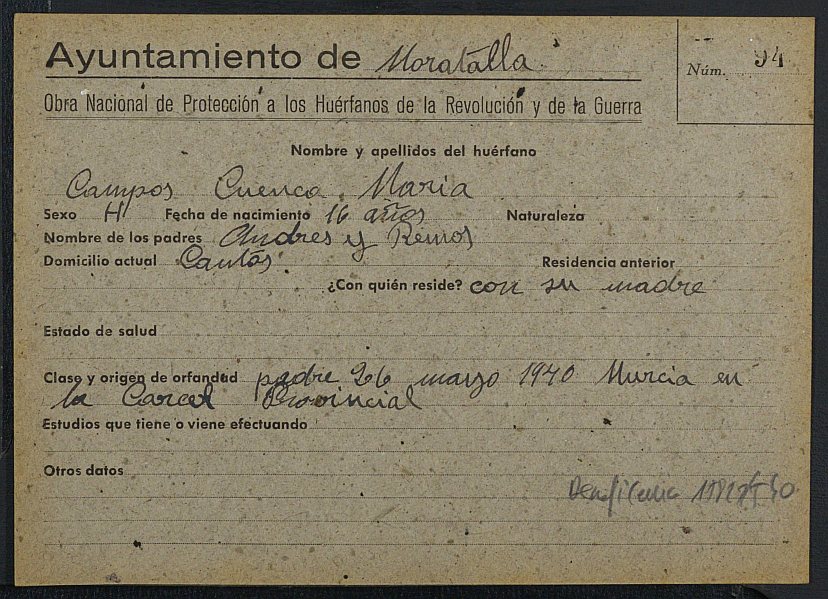 Ayuntamiento de Moratalla
Núm. 94
Obra Nacional de Protección a los Huérfanos de la Revolución y de la Guerra
Nombre y apellidos del huérfano
Campos Cuenca Maria
Sexo H Fecha de nacimiento 16 años Naturaleza
Nombre de los padres Andres y Remos
Domicilio actual Cantos Residencia anterior
¿Con quién reside? con su madre
Estado de salud
Clase y origen de orfandad padre 26 marzo 1940 Murcia en
la Carcel Provincial
Estudios que tiene o viene efectuando
Otros datos